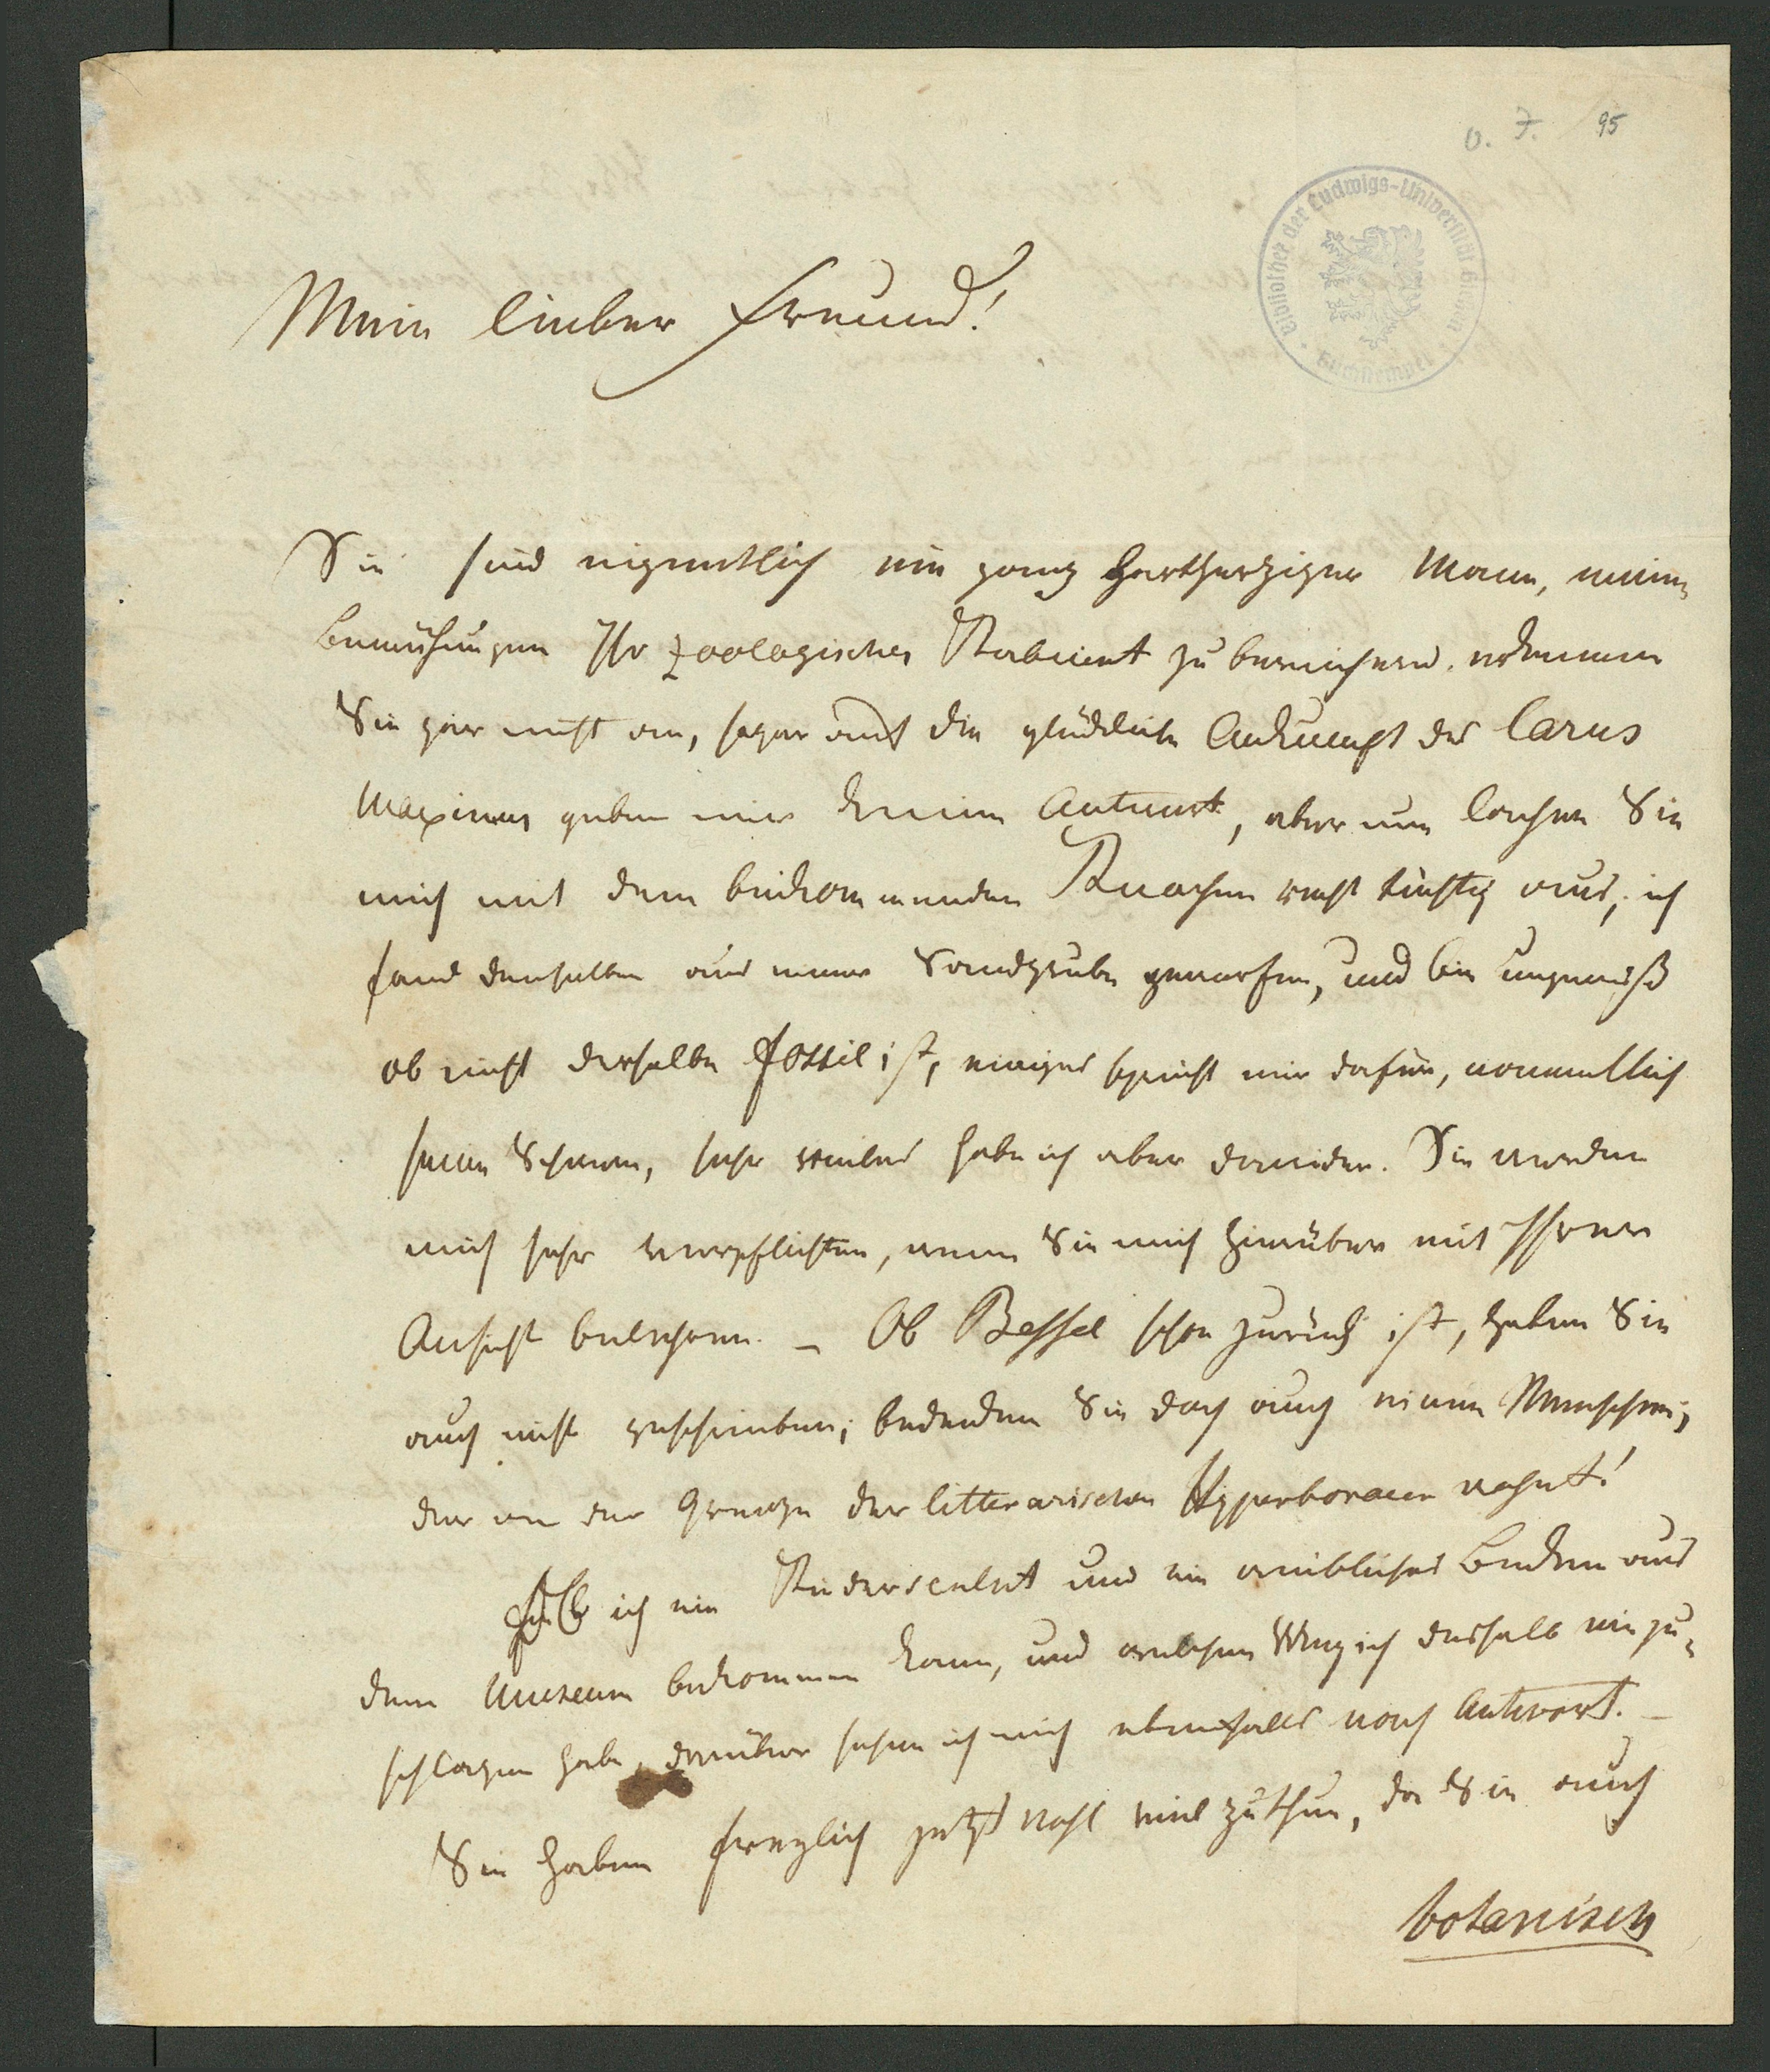 o. J. 95
Bibliothek der Ludwigs-Universität Giessen
Mein lieber Freund!
Sie sind eigentlich ein ganz hartherziger Mann, meine
Bemühungen Ihr zoologisches Kabinet zu bereichern erkennen
Sie gar nicht an, sogar auf die glückliche Ankunft des Larus
maximus geben mir keine Antwort, aber nun lachen Sie
mich mit dem beikommenden Knochen recht tüchtig aus, ich
fand denselben aus einer Sandgrube geworfen, und bin ungewiß
ob nicht derselbe fossil ist, einiges spricht mir dafür, namentlich
seine Schwere, sehr vieles habe ich aber dawider. Sie werden
mich sehr verpflichten, wenn Sie mich hierüber mit Ihrer
Ansicht belehren. – Ob Bessel schon zurück ist, haben Sie
auch nicht geschrieben; bedenken Sie doch auch einen Menschen,
der an der Grenze der litterarischen Hyperboraeer wohnt!
Ob ich ein Kinderscelet und ein weibliches Becken aus
dem Museum bekommen kann, und welchen Weg ich deshalb einzu-
schlagen habe, darüber sehne ich mich ebenfalls nach Antwort. –
Sie haben freylich jetzt wohl viel zu thun, da Sie auch
botanisch